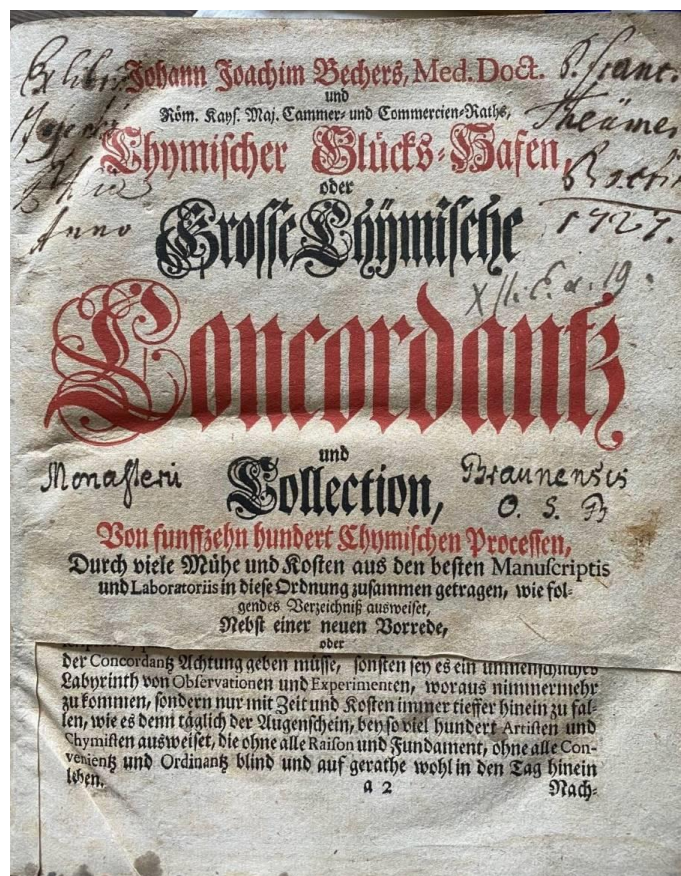 Johann Joachim Bechers, Med. Doct.
und
Röm. Kays. Maj. Cammer- und Commercien-Raths,
Chymischer Glücks-Hafen,
oder
Grosse Chymische
Concordantz
und
Collection,
Von funffzehn hundert Chymischen Processen,
Durch viele Mühe und Kosten aus den besten Manuscriptis
und Laboratoriis in diese Ordnung zusammen getragen, wie fol-
gendes Verzeichniß ausweiset,
Nebst einer neuen Vorrede,
oder
der Concordantz Achtung geben müsse, sonsten sey es ein unmenschliches
Labyrinth von Observationen und Experimenten, woraus nimmermehr
zu kommen, sondern nur mit Zeit und Kosten immer tieffer hinein zu fal-
len, wie es denn täglich der Augenschein, bey so viel hundert Artisten und
Chymisten ausweiset, die ohne alle Raison und Fundament, ohne alle Con-
venientz und Ordinantz blind und auf gerathe wohl in den Tag hinein
leben.
a 2
Nach-
Ex libris
Anno
P. Franc.
1727.
Monasterii
Braunensis
O. S. B